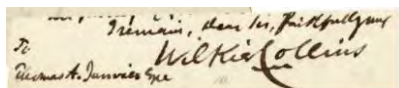 I remain, dear sir, faithfully yours
To
Wilkie Collins
Thomas A. Janvier Esqre